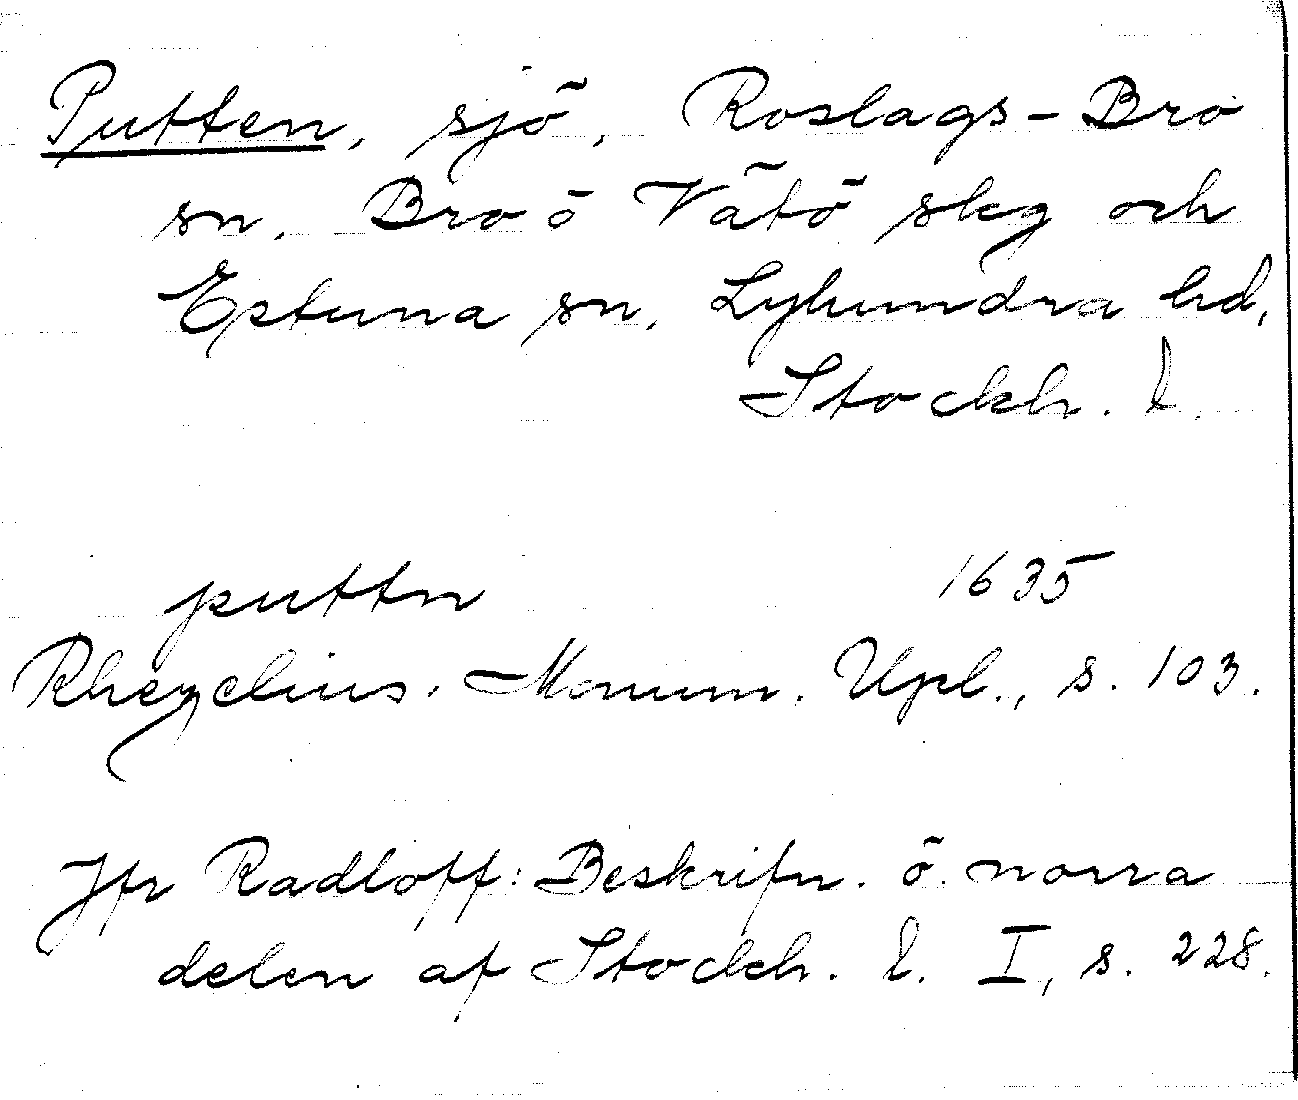 Putten, sjö, Roslags-Bro
sn, Bro o Vätö skg och
Estuna sn, Lyhundra hd,
Stockh. l.
puttn 1635
Rhezelius. Monum. Upl., s. 103.
Jfr Radloff: Beskrifn. ö. norra
delen af Stockh. l. I, s. 228.